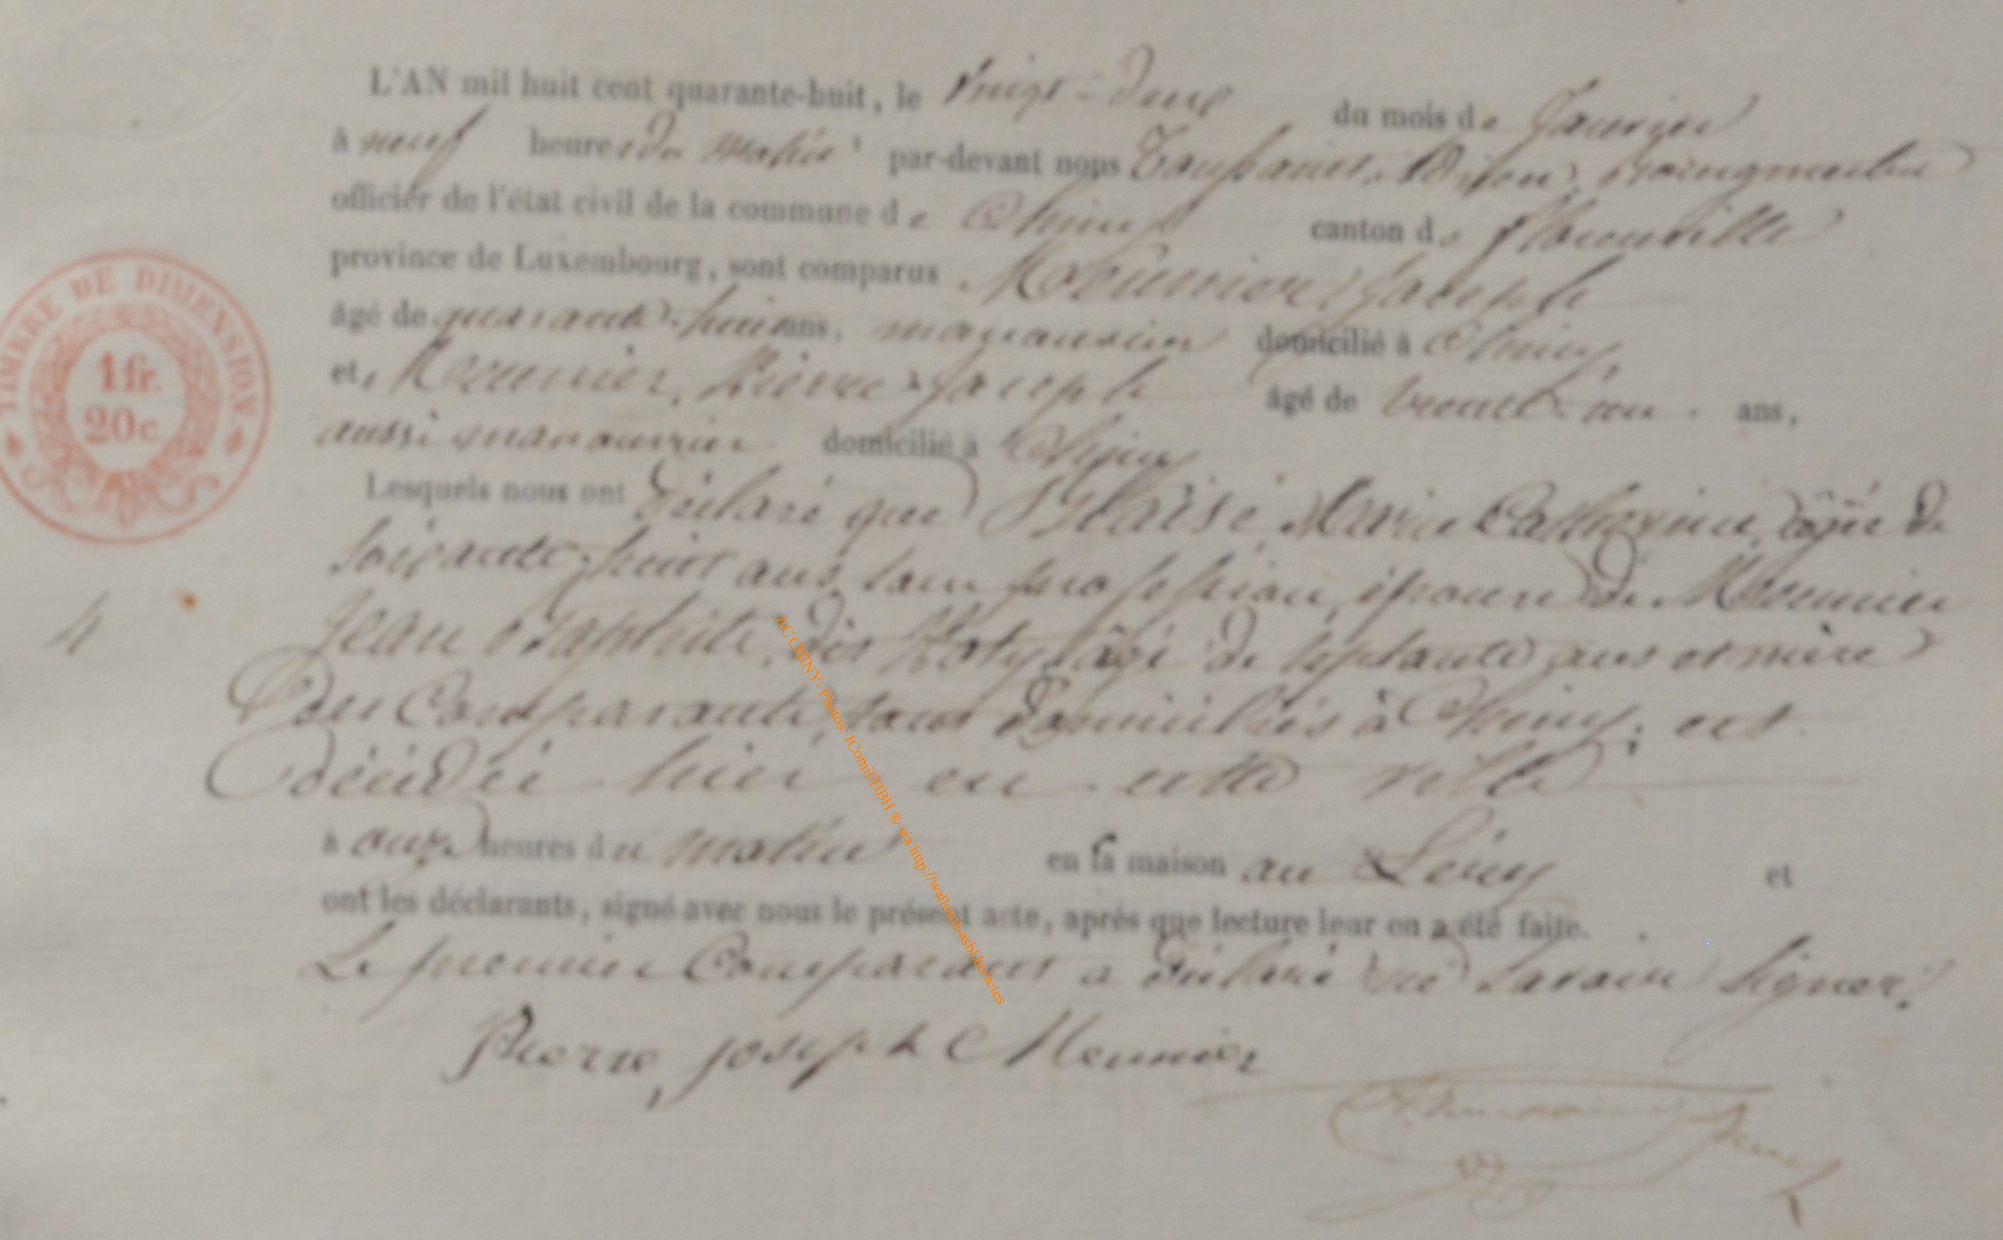 L'AN mil huit cent quarante-huit, le vingt-deux du mois de Janvier
à neuf heures du matin par-devant nous Toussaint bourgmestre
officier de l'état civil de la commune de Chiny canton de Florenville
province de Luxembourg, sont comparus Meunier Joseph
âgé de quarante-huit ans, manouvrier domicilié à Chiny
et, Meunier, Pierre Joseph âgé de trente-un ans,
aussi manouvrier domicilié à Chiny
Lesquels nous ont déclaré que Blaise, Marie Catherine, âgée de
soixante-huit ans, sans profession, épouse de Meunier
Jean Baptiste, dit âgé de septante ans et mère
des Comparants, tous domiciliés à Chiny, est
décédée hier en cette ville
à onze heures du matin en sa maison au et
ont les déclarants, signé avec nous le présent acte, après que lecture leur en a été faite.
Le premier Comparant a déclaré ne savoir signer.
Pierre, joseph Meunier
TIMBRE DE DIMENSION
1 fr.
20 c.
4
AC CHINY- Photos JCornil/HBH © via http://wallonia-asbl.be/actes